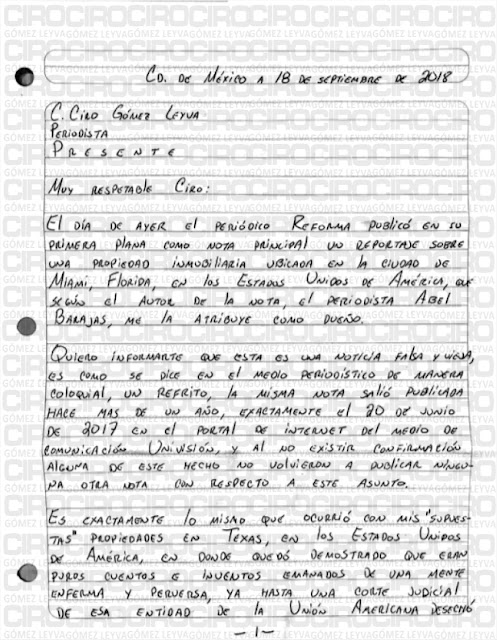 CD. DE MÉXICO A 18 DE SEPTIEMBRE DE 2018
C. CIRO GÓMEZ LEYVA
PERIODISTA
PRESENTE
MUY RESPETABLE CIRO:
EL DÍA DE AYER EL PERIÓDICO REFORMA PUBLICÓ EN SU
PRIMERA PLANA COMO NOTA PRINCIPAL UN REPORTAJE SOBRE
UNA PROPIEDAD INMOBILIARIA UBICADA EN LA CIUDAD DE
MIAMI, FLORIDA, EN LOS ESTADOS UNIDOS DE AMÉRICA, QUE
SEGÚN EL AUTOR DE LA NOTA, EL PERIODISTA ABEL
BARAJAS, ME LA ATRIBUYE COMO DUEÑO.
QUIERO INFORMARTE QUE ESTA ES UNA NOTICIA FALSA Y VIEJA,
ES COMO SE DICE EN EL MEDIO PERIODÍSTICO DE MANERA
COLOQUIAL, UN REFRITO, LA MISMA NOTA SALIÓ PUBLICADA
HACE MAS DE UN AÑO, EXACTAMENTE EL 20 DE JUNIO
DE 2017 EN EL PORTAL DE INTERNET DEL MEDIO DE
COMUNICACIÓN UNIVISIÓN, Y AL NO EXISTIR CONFIRMACIÓN
ALGUNA DE ESTE HECHO NO VOLVIERON A PUBLICAR NINGU-
NA OTRA NOTA CON RESPECTO A ESTE ASUNTO.
ES EXACTAMENTE LO MISMO QUE OCURRIÓ CON MIS "SUPUES-
TAS" PROPIEDADES EN TEXAS, EN LOS ESTADOS UNIDOS
DE AMÉRICA, EN DONDE QUEDÓ DEMOSTRADO QUE ERAN
PUROS CUENTOS E INVENTOS EMANADOS DE UNA MENTE
ENFERMA Y PERVERSA, YA HASTA UNA CORTE JUDICIAL
DE ESA ENTIDAD DE LA UNIÓN AMERICANA DESECHÓ
-1-